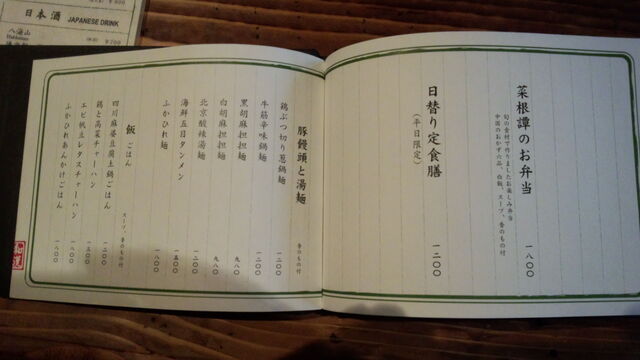 日本酒 JAPANESE DRINK
八海山
¥700
菜根譚のお弁当 一八〇〇
旬の食材で作りましたお楽しみ弁当
中国のおかず六品、白飯、スープ、香のもの付
日替り定食膳 一二〇〇
(平日限定)
豚饅頭と湯麺 香のもの付
鶏ぶつ切り葱鍋麺 一二〇〇
牛筋辛味鍋麺 一二〇〇
黒胡麻担担麺 九八〇
白胡麻担担麺 九八〇
北京酸辣湯麺 一二〇〇
海鮮五目タンメン 一五〇〇
ふかひれ麺 一八〇〇
飯 ごはん スープ、香のもの付
四川麻婆豆腐土鍋ごはん 一二〇〇
鶏と高菜チャーハン 一五〇〇
エビ帆立レタスチャーハン 一八〇〇
ふかひれあんかけごはん 一八〇〇